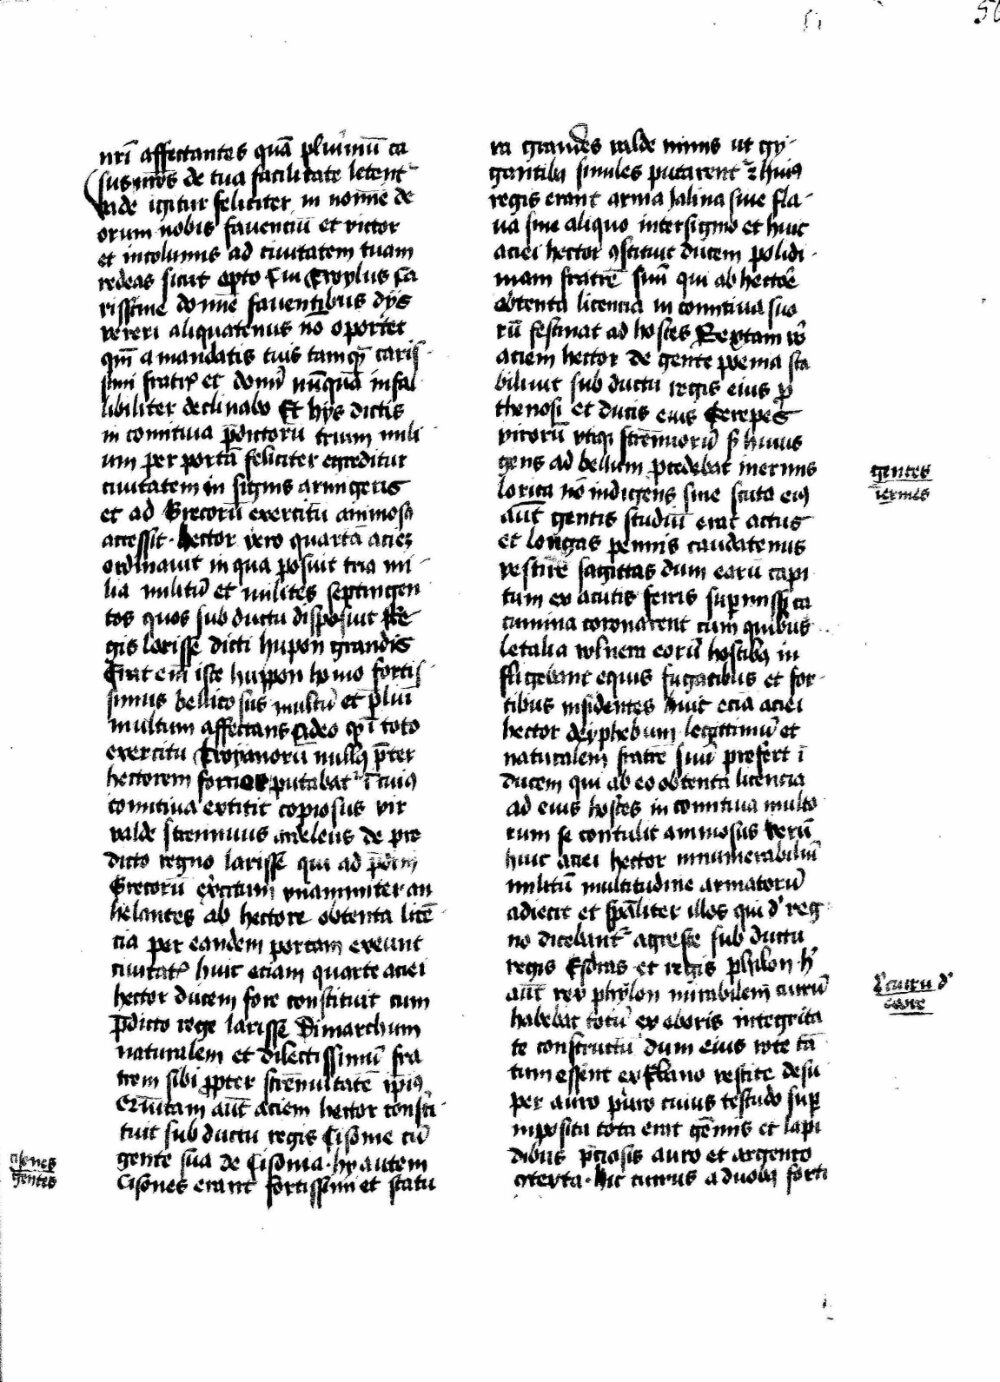 51
56
nr̄i affectantes quā pluīmū ca
sus nr̄os de tua facilitate letent᷑
vade igitur feliciter in noīne de
orum nobis faventiū et victor
et incolumis ad civitatem tuam
redeas sicut opto Cui Troylus Ca
rissime domīe faventibus dijs
vereri aliquatenus nō oportet
qm̄ a mandatis tuis tamqꝫ caris
simi fratrꝭ et domī nūquā infal
libiliter declinabo Et hijs dictis
in comitiva p̄dictorū trium mili
um per portā feliciter egreditur
civitatem in signis armigeris
et ad Grecorū exercitū animose
accessit. hector vero quartā aciē
ordinavit in qua posuit tria mi
lia militū et milites septingen
tos quos sub ductu disposuit Re
gis larisse dicti hupon grandis
Erat em̄ iste huppon homo fortis
simus bellicosus multū et pluī
multum affectans Adeo qꝫ ī toto
exercitu Troyanorū nullꝰ p̄ter
hectorem fortior putabat᷑ ī cuiꝰ
comitiva extitit copiosus vir
valde strennuus ameleus de pre
dicto regno larisse qui ad p̄dcm̄
Grecorū ex̄citum unanimiter an
helantes ab hectore obtenta licē
cia per eandem portam exeunt
civitatꝭ huic etiam quarte aciei
hector ducem fore constituit cum
p̄dicto rege larisse Dimarchum
naturalem et dilectissimū fra
trem sibi ꝓpter strēnuitatē ipiꝰ
Quītam aūt aciem hector consti
tuit sub ductu regis Cisonie cū
gente sua de Cisonia. hij autem
Cisones erant fortissimi et statu
cisones
gentes
ra grandes valde nimis ut gy-
gantibꝫ similes putarent᷑ ⁊ huiꝰ
regis erant arma Jalina sive fla-
va sine aliquo intersigno et huic
aciei hector ꝯstituit ducem polidi-
mam fratrē suū qui ab hectoē
obtenta licencia in comitiva suo
rū festinat ad hostes Sextam v̊
aciem hector de gente poema sta
biliuit sub ductu regis eius ꝓ
thenosi et ducis eius Serepes
virorū utiqꝫ strēnuorū sꝫ huius
gens ad bellum p̄cedebat inermis
lorica nō indigens sine scuta eiꝰ
aūt gentis studiū erat actus
et longas pennis caudatenus
vestire sagittas dum earū capi
tum ex acutis ferris sup̄missꝫ ca
cumina coronarent cum quibus
letalia vulnera eorū hostibꝫ in
fligebant equis fugacibus et for-
tibus insidentes huic eciā aciei
hector deyphebum legittimū et
naturalem fratrē suū prefert ī
ducem qui ab eo obtenta licencia
ad eius hostes in comitiva multo
rum se contulit animosus verū
huic aciei hector innumerabiliū
militū multitudine armatorū
adiecit et spāliter illos qui d' reg
no dicebant᷑ agreste sub ductu
regis Esdras et regis philon h'
aūt rex philon mirabilem currū
habebat totū ex eboris integrita
te constructū dum eius rote tā
tum essent ex Ebano vestite desu
per auro puro cuius testudo sup̄
imposita tota erat gēmis et lapi
dibus p̄ciosis auro et argento
ꝯtexta. hic currus a duobꝫ forti
gentes
inermes
currū d'
ebore